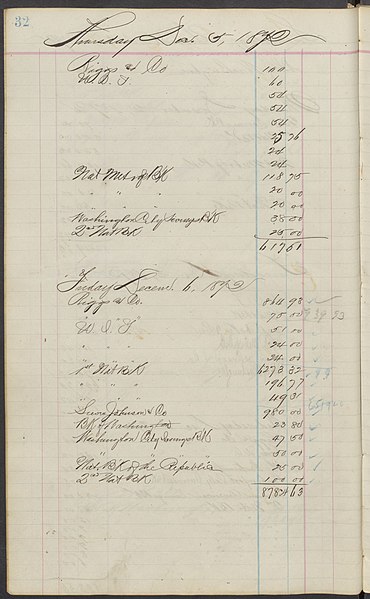 32
Thursday Dec. 5, 1872
Riggs & Co 100
W. D. S. 60
54
54
54
35 76
24
24
Nat Metrop BK 118 75
" " " 20 00
" " " 20 00
Washington City Savings BK 38 00
2nd Nat BK 25 00
617 51
Friday Decem. 6, 1872
Riggs & Co. 864 98
" 75 00
W. D. S. 51 00
" 24 00
" 24 00
1st Nat BK 6273 32
" " " 196 77
" " "
Johnson & Co 950 00
BK of Washington 23 80
Washington City Savings BK 47 50
" " " " 50 00
Nat. BK of the Republic 25 00
2nd Nat BK 100 00